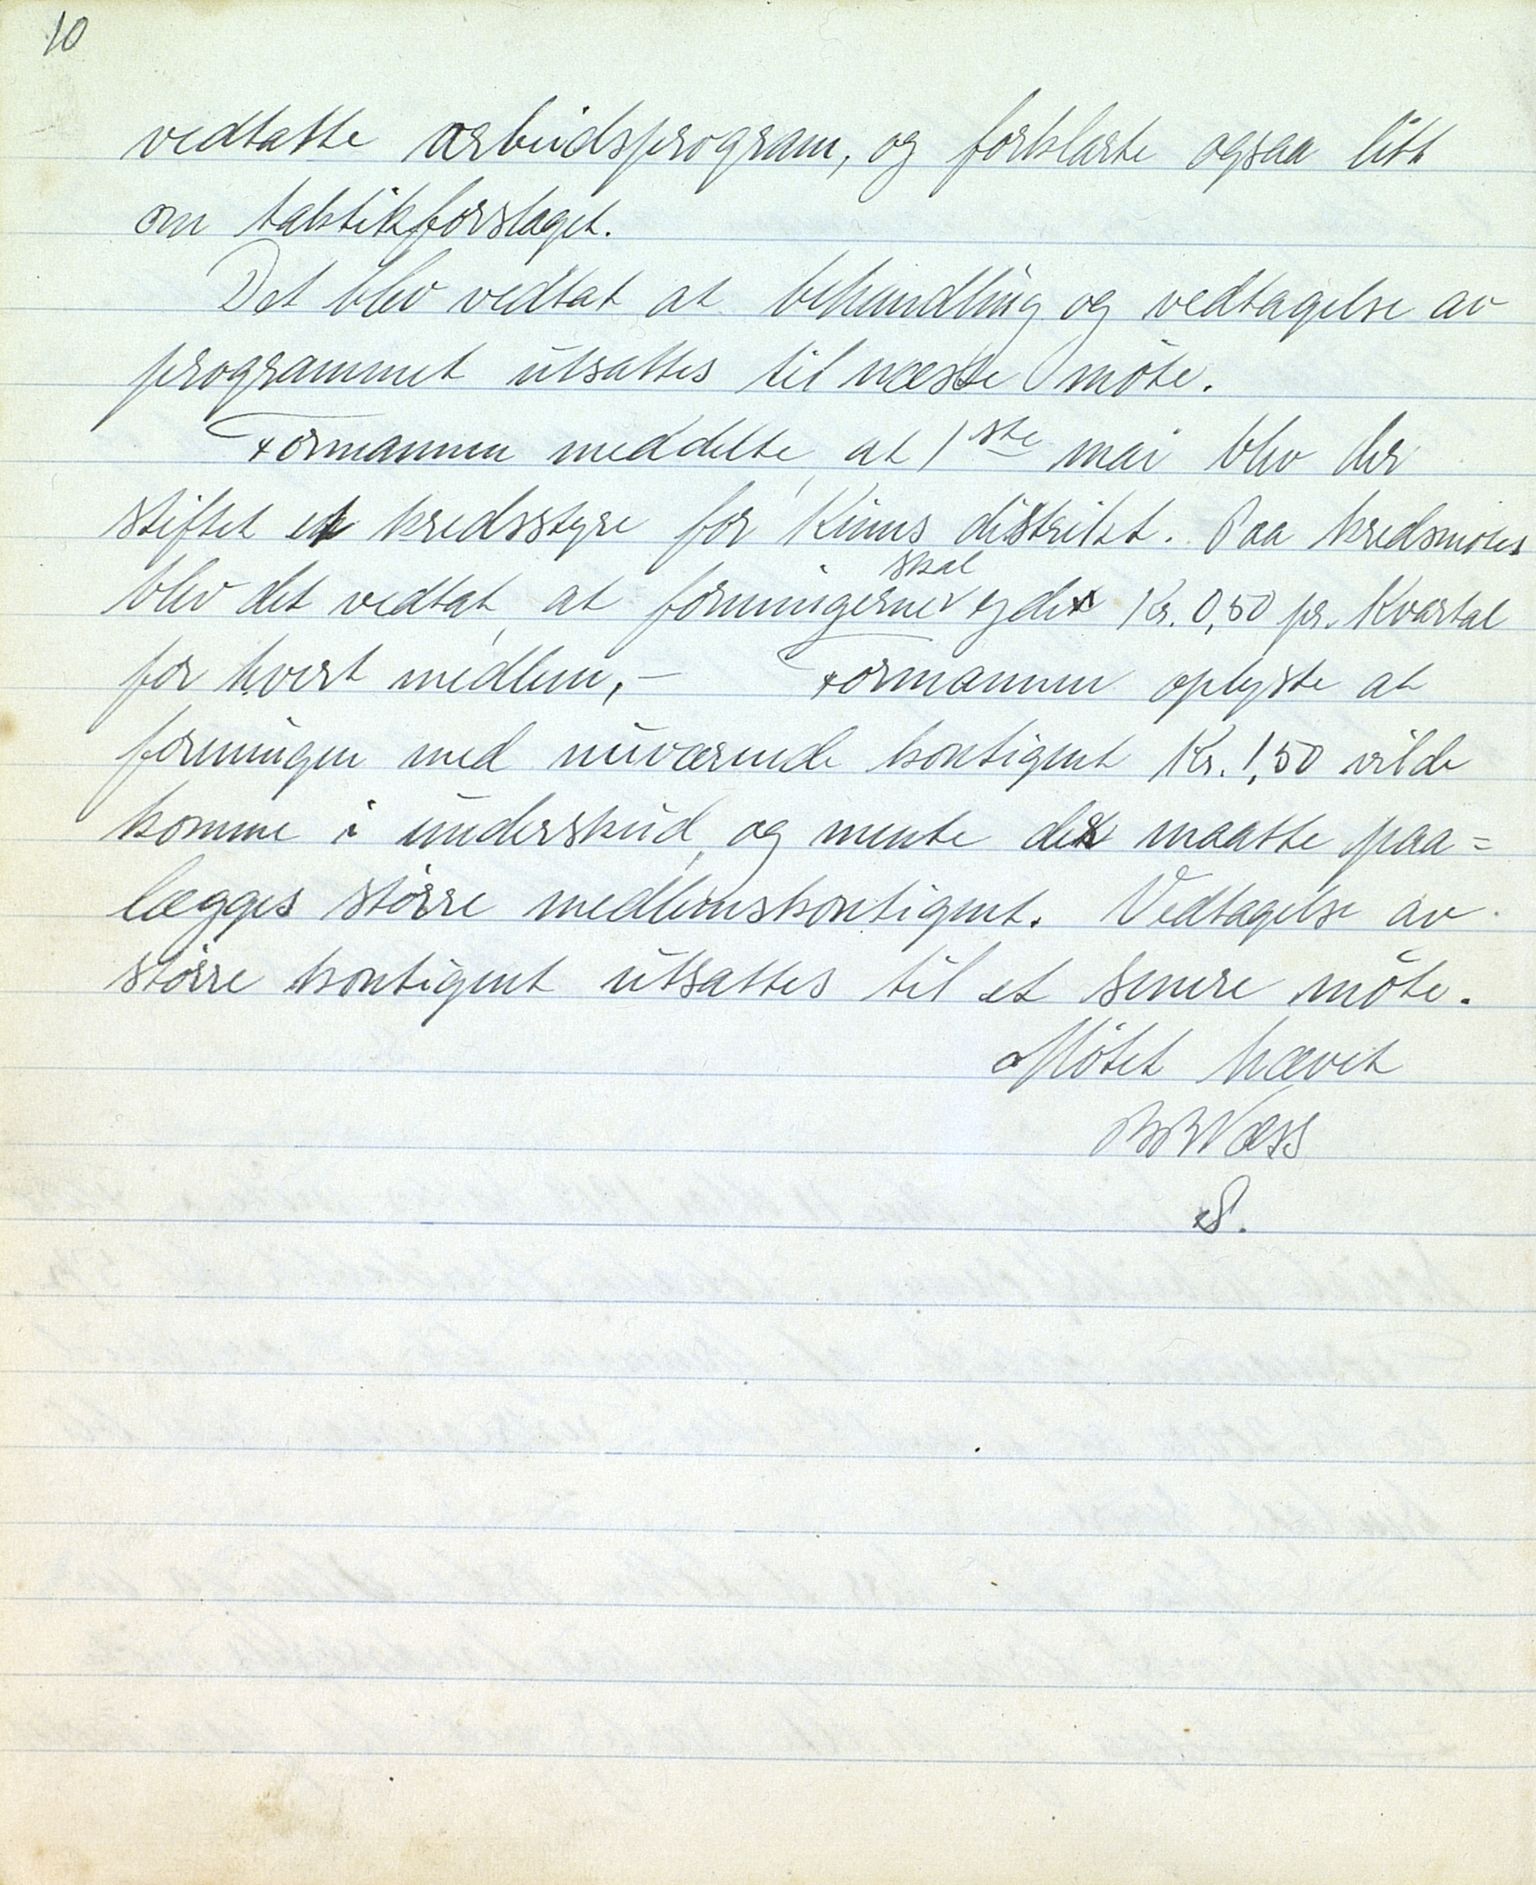 10
vedtatte arbeidsprogram, og forklarte ogsaa litt
om taktikforslaget.
Det blev vedtat at behandling og vedtagelse av
programmet utsattes til næste møte.
Formannen meddelte, at 1ste mai blev der
stiftet et kredsstyre for Kinns distrikt. Paa kredsmøtet
blev det vedtat, at foreningerne skal yde Kr. 0,50 pr. Kvartal
for hvert medlem,- Formannen oplyste at
foreningen med nuværende kontigent Kr. 1,50 vilde
komme i underskud, og mente det maatte paa=
lægges større medlemskontigent. Vedtagelse av
større kontigent utsattes til et senere møte.
Møtet hævet
Næss
S.